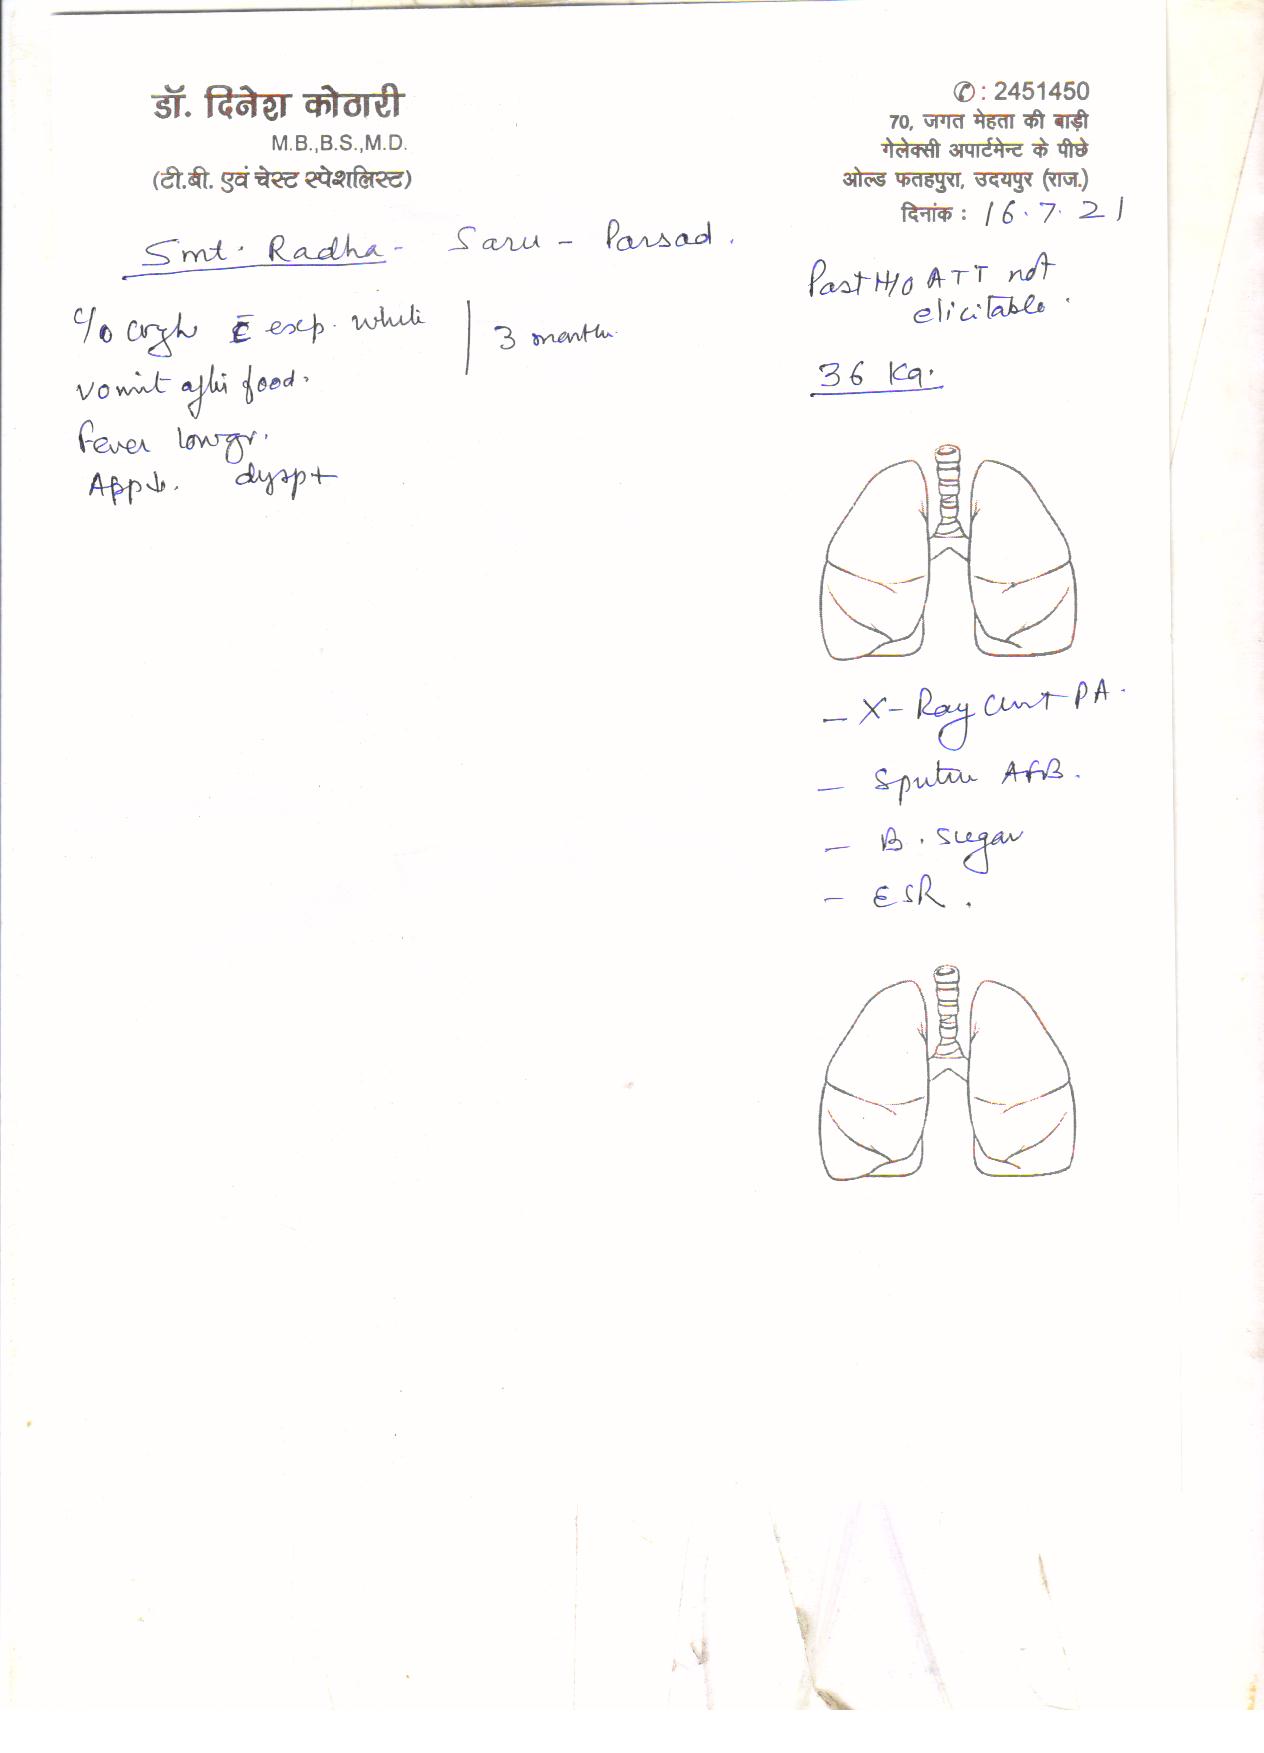 डॉ. दिनेश कोठारी
M.B.,B.S.,M.D.
(टी.बी. एवं चेस्ट स्पेशलिस्ट)
✆: 2451450
70, जगत मेहता की बाड़ी
गेलेक्सी अपार्टमेन्ट के पीछे
ओल्ड फतहपुरा, उदयपुर (राज.)
दिनांक : 16.7.21
Smt. Radha - Saru - Parsad.
C/o cough c̄ exp. while
3 months
vomit after food.
Fever low gr.
App↓. dysp+
Past H/O ATT not
elicitable.
36 Kg.
- X-Ray Chest PA.
- Sputum AFB.
- B. Sugar
- ESR.